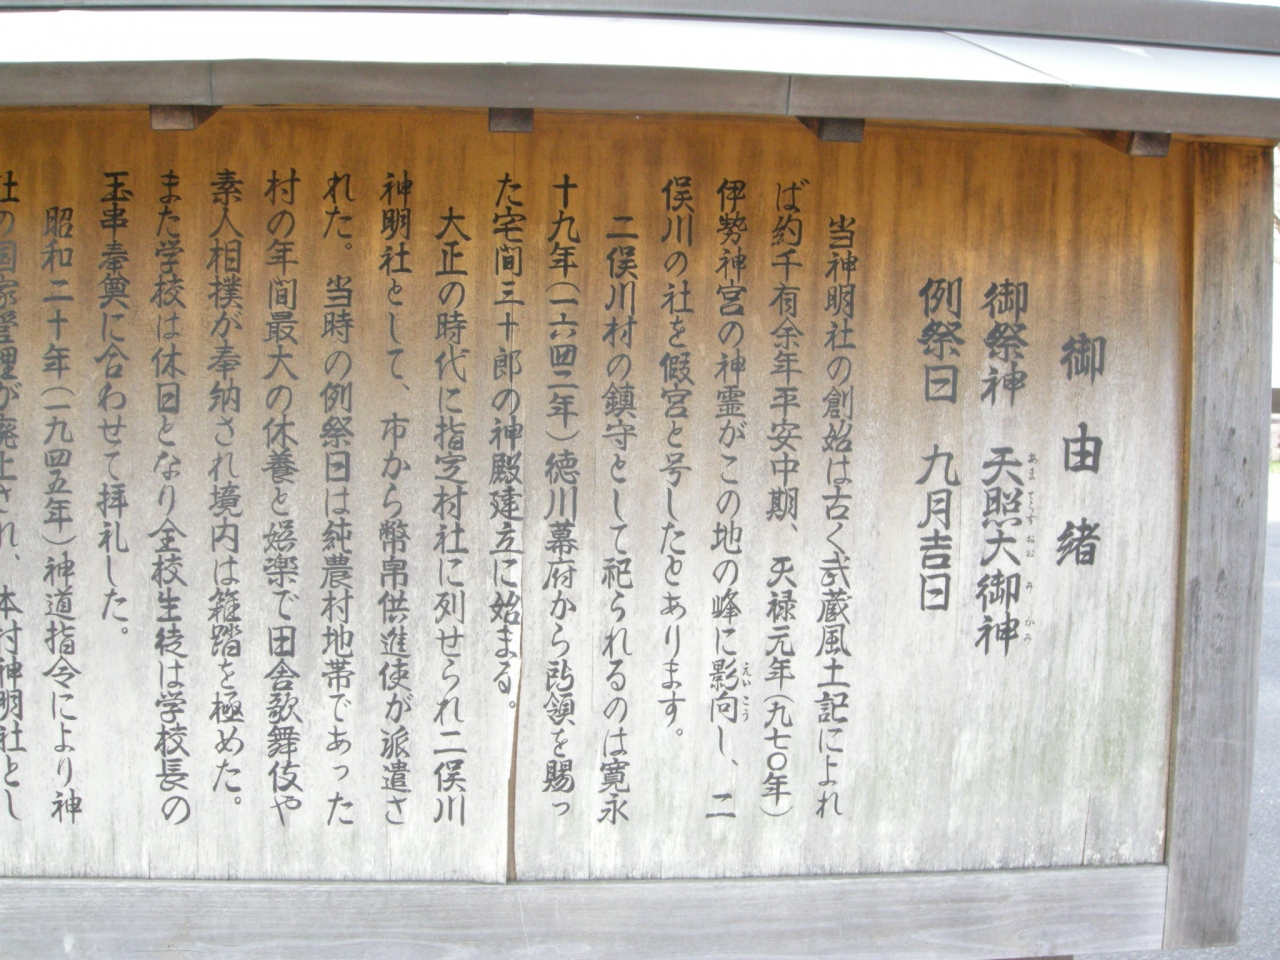 御由緒
御祭神 天照大御神
あまてらすおおみかみ
例祭日 九月吉日
当神明社の創始は古く武蔵風土記によれ
ば約千有余年平安中期、天禄元年(九七〇年)
伊勢神宮の神霊がこの地の峰に影向し、二
えいこう
俣川の社を假宮と号したとあります。
二俣川村の鎮守として祀られるのは寛永
十九年(一六四二年)徳川幕府から所領を賜っ
た宅間三十郎の神殿建立に始まる。
大正の時代に指定村社に列せられ二俣川
神明社として、市から幣帛供進使が派遣さ
れた。当時の例祭日は純農村地帯であった
村の年間最大の休養と娯楽で田舎歌舞伎や
素人相撲が奉納され境内は雑踏を極めた。
また学校は休日となり全校生徒は学校長の
玉串奏奠に合わせて拝礼した。
昭和二十年(一九四五年)神道指令により神
社の国家管理が廃止され、本村神明社とし